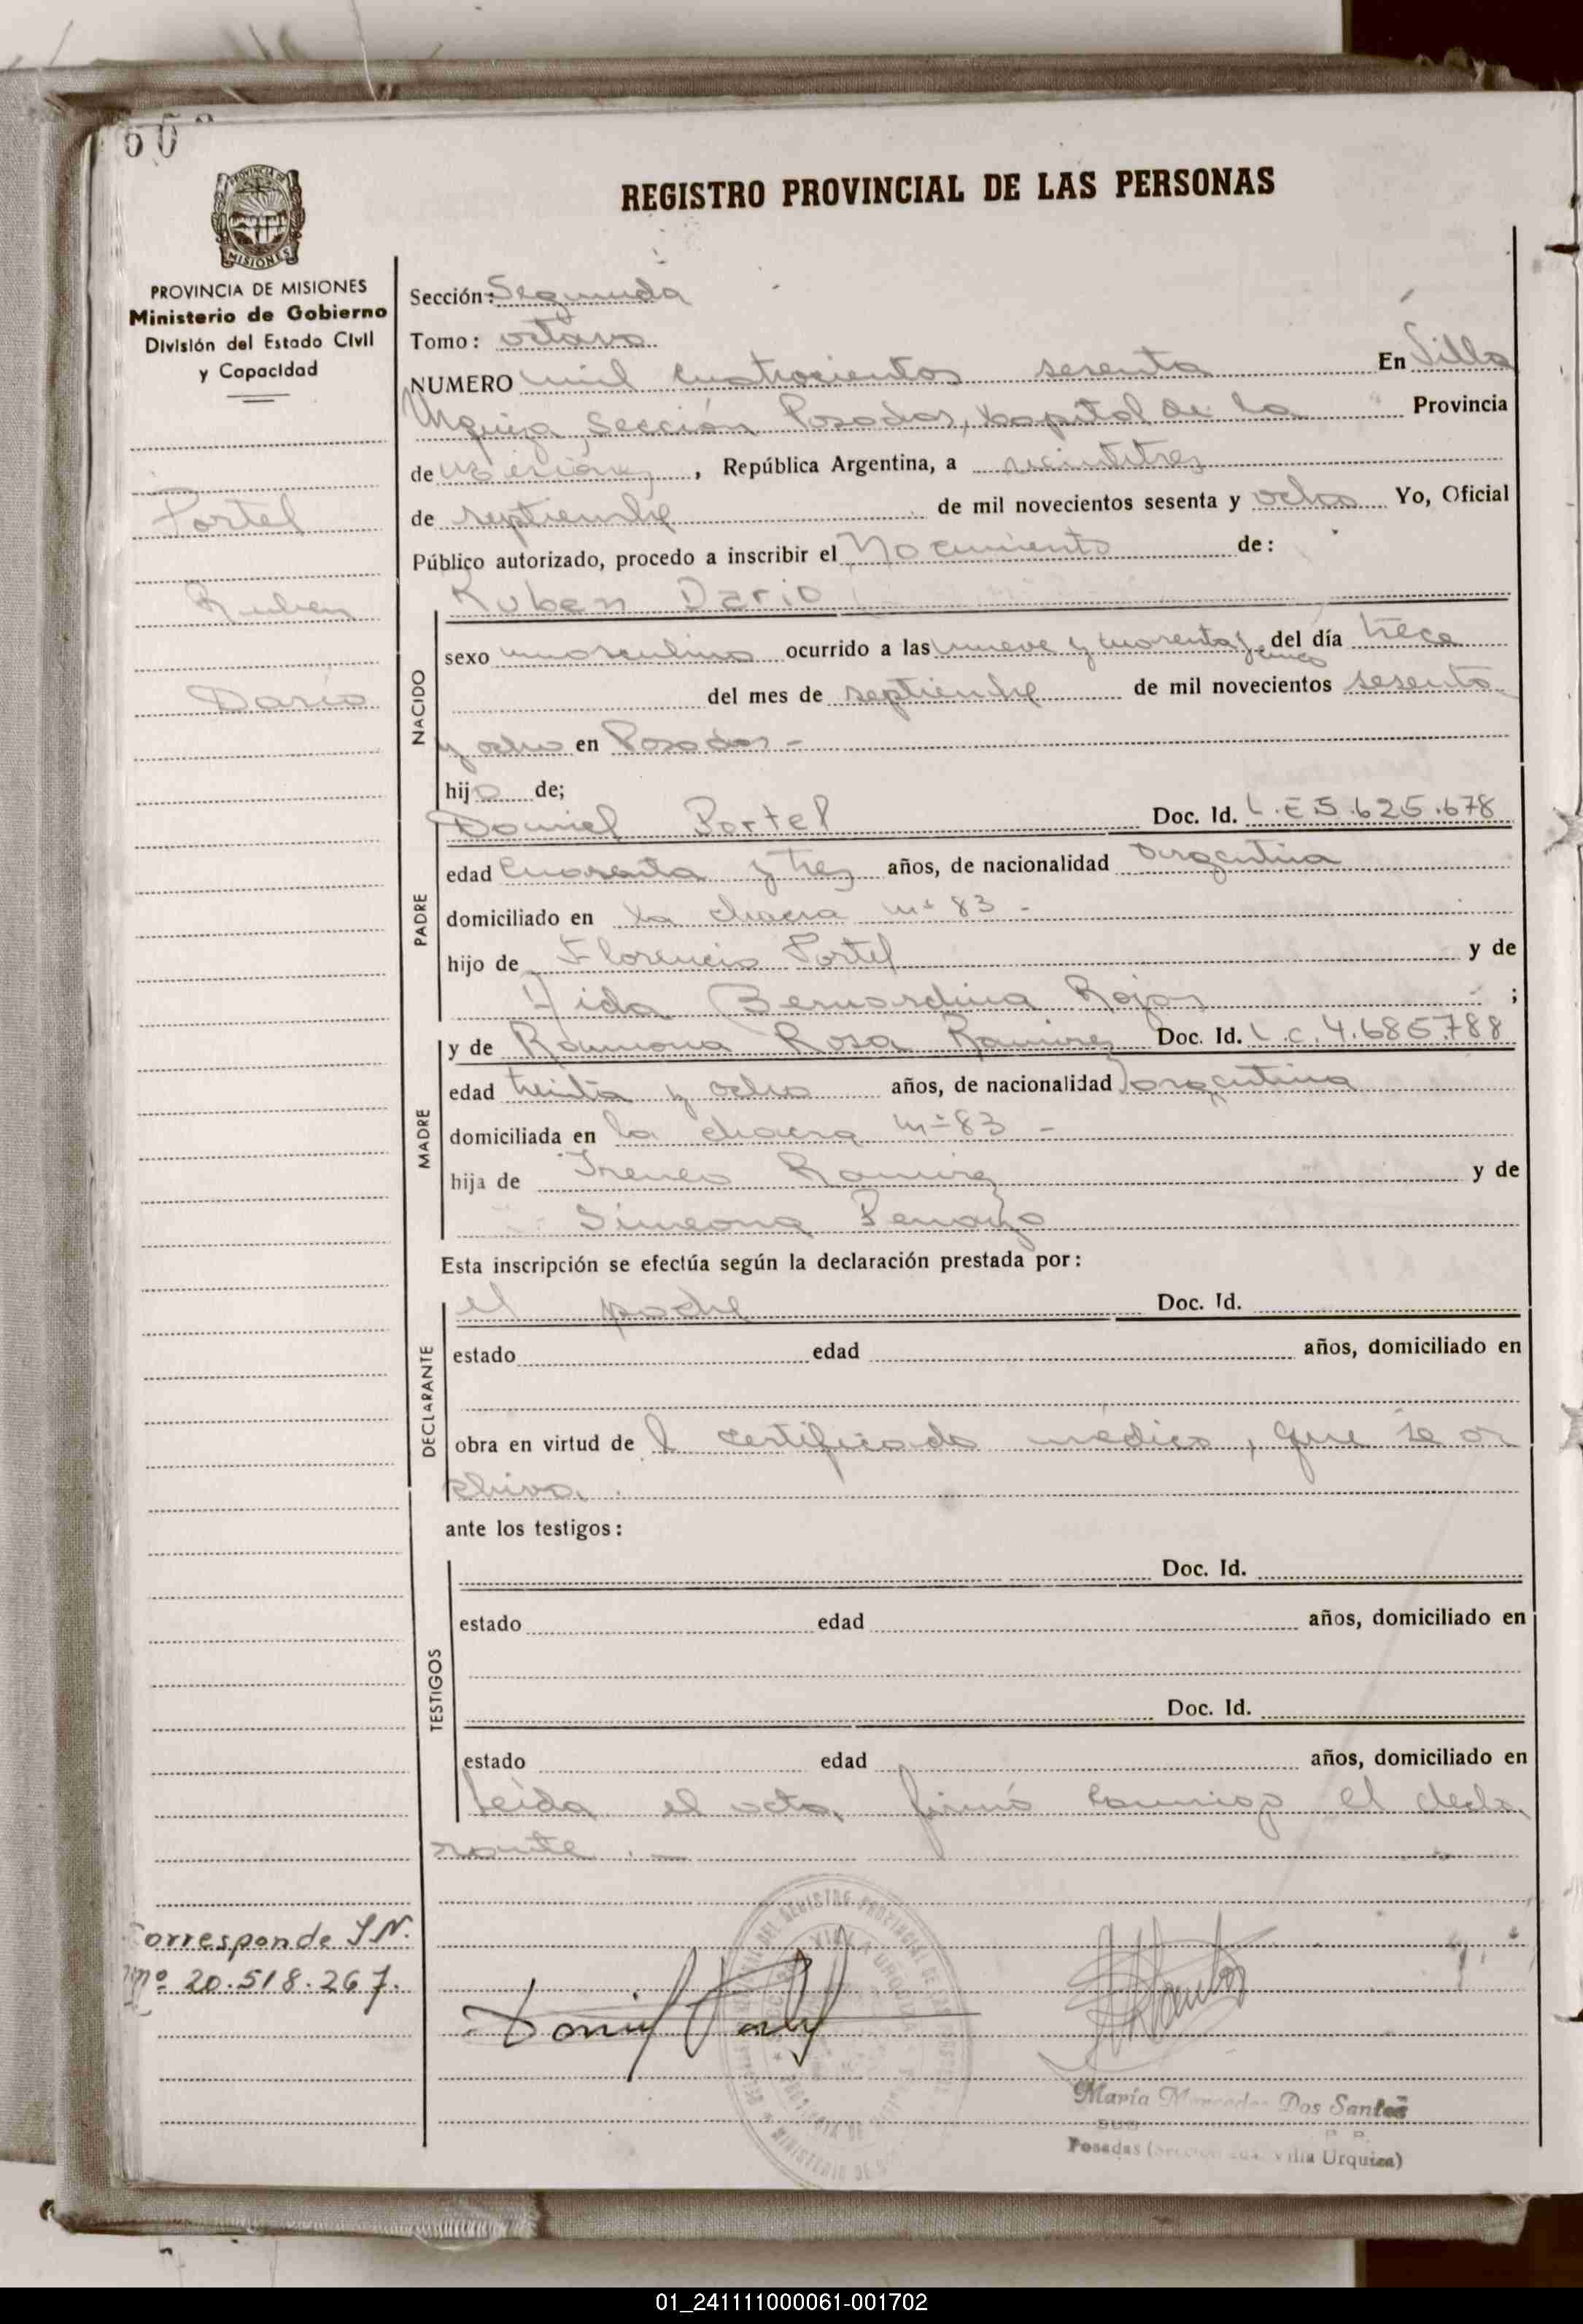 REGISTRO PROVINCIAL DE LAS PERSONAS
PROVINCIA DE
MISIONES
PROVINCIA DE MISIONES
Ministerio de Gobierno
División del Estado Civil
y Capacidad
Portel
Ruben
Dario
Corresponde I.N.
nº 20.518.267.
Sección: Segunda
Tomo: octavo
NUMERO mil cuatrocientos sesenta En Villa
Urquiza, Sección Posadas, Capital de la Provincia
de Misiones, República Argentina, a veintitres
de septiembre de mil novecientos sesenta y ocho Yo, Oficial
Público autorizado, procedo a inscribir el Nacimiento de:
NACIDO
Ruben Dario
sexo masculino ocurrido a las nueve y cuarenta y cinco del día trece
del mes de septiembre de mil novecientos sesenta
y ocho en Posadas -
hijo de;
PADRE
Daniel Portel Doc. Id. L.E 5.625.678
edad cuarenta y tres años, de nacionalidad argentina
domiciliado en la chacra nº 83 -
hijo de Florencio Portel y de
Aida Bernardina Rojas ;
MADRE
y de Ramona Rosa Ramirez Doc. Id. L.C. 4.685.788
edad treinta y ocho años, de nacionalidad argentina
domiciliada en la chacra nº 83 -
hija de Ireneo Ramirez y de
Simeona
Esta inscripción se efectúa según la declaración prestada por:
DECLARANTE
el padre Doc. Id.
estado edad años, domiciliado en
obra en virtud de l certificado medico, que se ar
chiva.
ante los testigos:
TESTIGOS
Doc. Id.
estado edad años, domiciliado en
Doc. Id.
estado edad años, domiciliado en
Leida el acta, firmó conmigo el decla
rante. —
Daniel Portel
María Mercedes Dos Santos
Posadas (Sección 2da. Villa Urquiza)
01_241111000061-001702